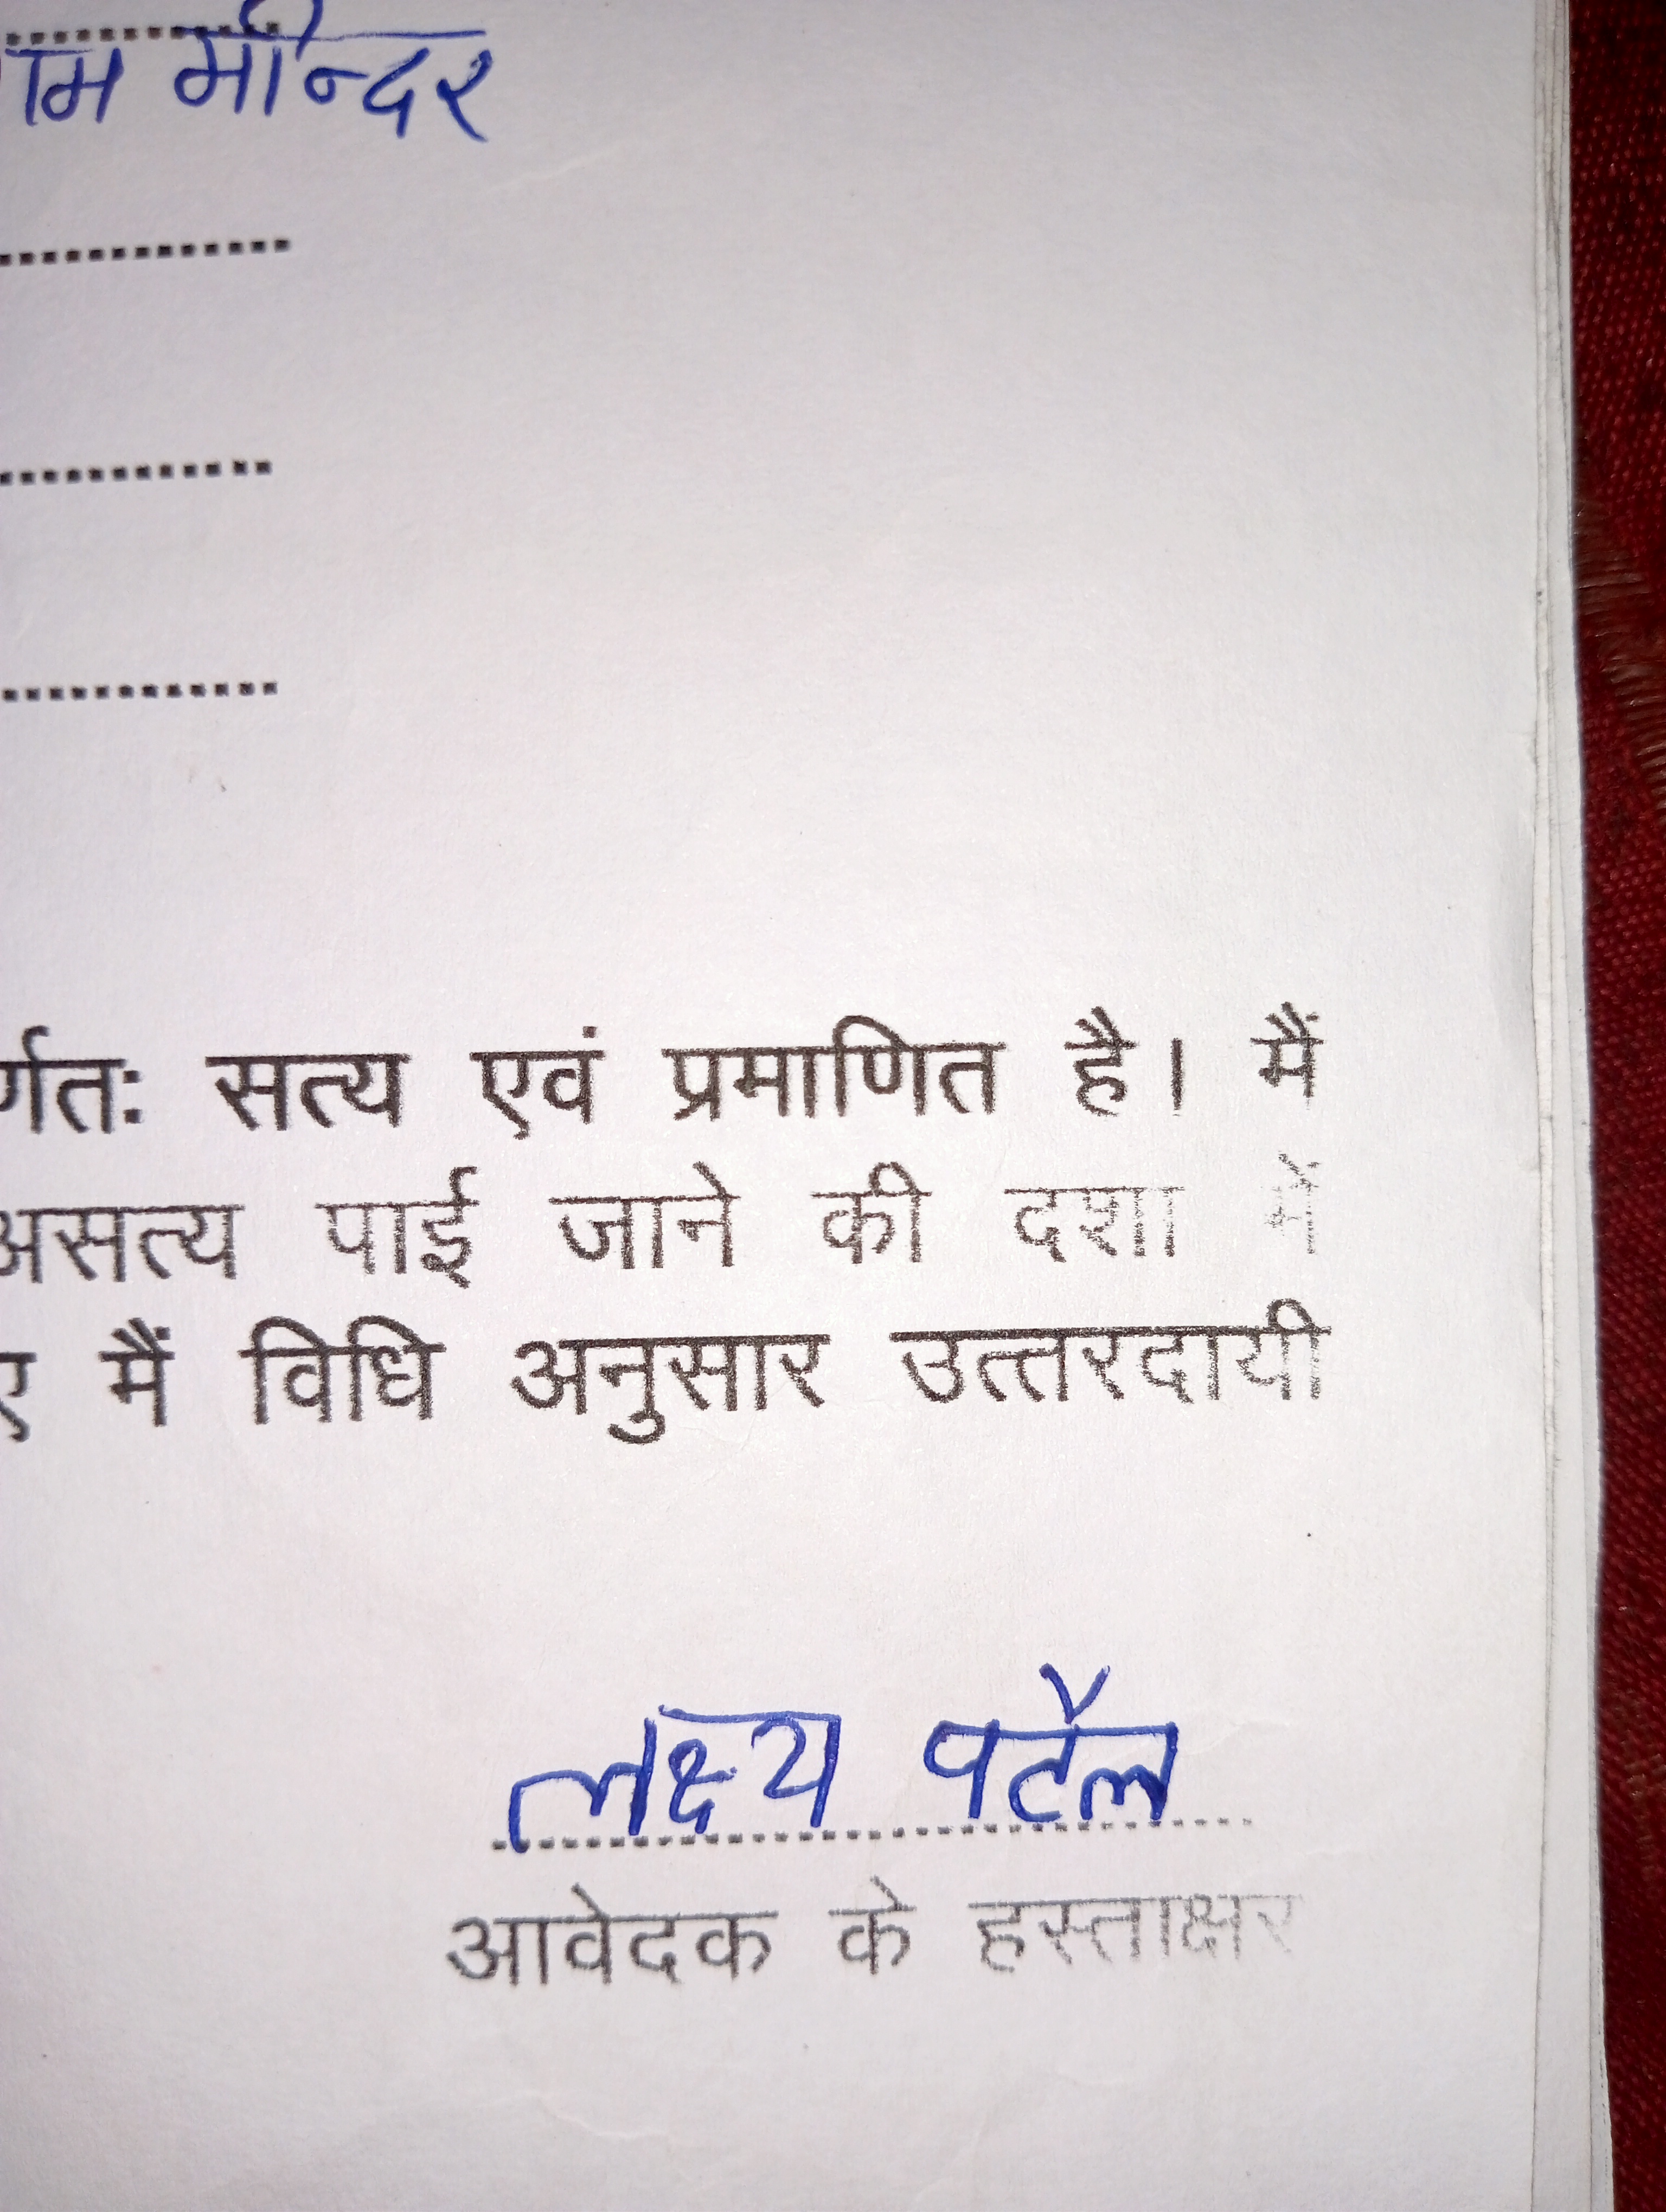 मन्दिर
सत्य एवं प्रमाणित है। मैं
असत्य पाई जाने की दशा में
मैं विधि अनुसार उत्तरदायी
लक्ष्य पटैल
आवेदक के हस्ताक्षर